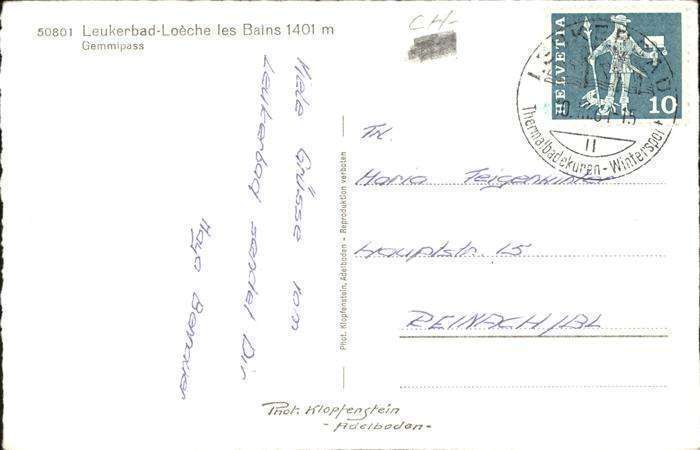 50801 Leukerbad-Loèche les Bains 1401 m
Gemmipass
CH-
HELVETIA
10
LEUKERBAD
Thermalbadekuren - Wintersport
Viele Grüsse vom
Leukerbad sendet Dir
Phot. Klopfenstein, Adelboden - Reproduktion verboten
Fr.
Maria Feigenwinter
Hauptstr. 15
REINACH/BL
Phot. Klopfenstein
- Adelboden -